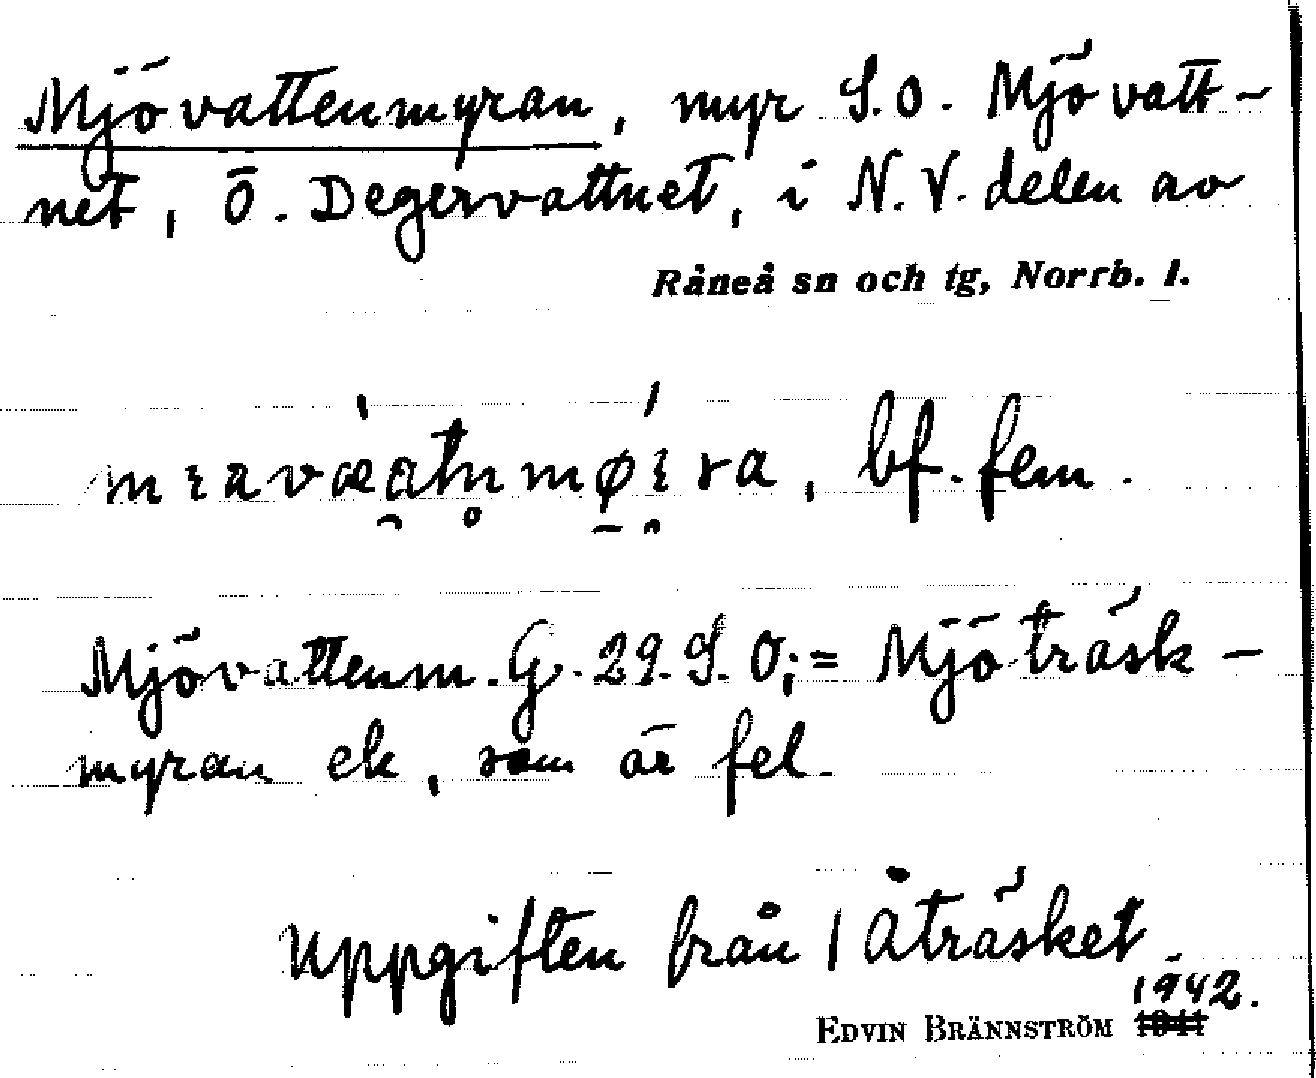 Mjövattenmyran, myr S.O. Mjövatt-
net, Ö. Degervattnet, i N.V. delen av
Råneå sn och tg, Norrb. l.
bf. fem.
Mjövattenm. G. 29. S. O; = Mjöträsk-
myran ek, som är fel.
Uppgiften från / Åträsket
1942.
EDVIN BRÄNNSTRÖM 1941